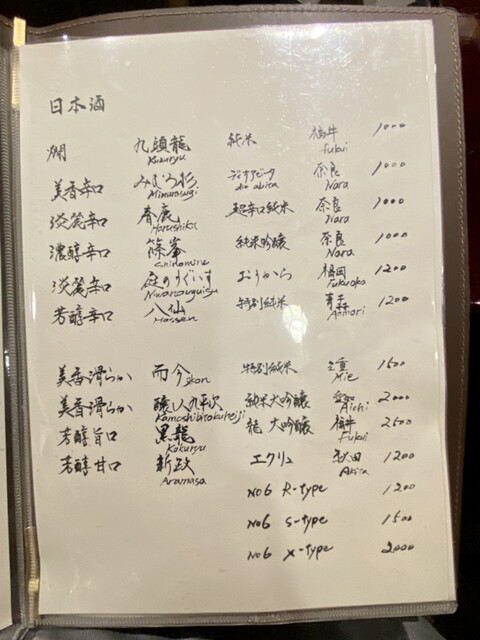 日本酒
燗 九頭龍 純米 福井 1000
Kukuryu fukui
美香辛口 みむろ杉 ディオアビータ 奈良 1000
Mimurosugi dio abita Nara
淡麗辛口 春鹿 超辛口純米 奈良 1000
Harushika Nara
濃醇辛口 篠峯 純米吟醸 奈良 1000
Shinomine Nara
淡麗辛口 庭のうぐいす おりがら 福岡 1200
Niwanouguisu Fukuoka
芳醇辛口 八仙 特別純米 青森 1200
Hassen Aomori
美香滑らか 而今 特別純米 三重 1500
Jikon Mie
美香滑らか 醸し人九平次 純米大吟醸 愛知 2000
Kamoshibitokuheiji Aichi
芳醇旨口 黒龍 龍 大吟醸 福井 2500
Kokuryu Fukui
芳醇甘口 新政 エクリュ 秋田 1200
Aramasa Akita
No6 R-type 1200
No6 S-type 1500
No6 X-type 2000